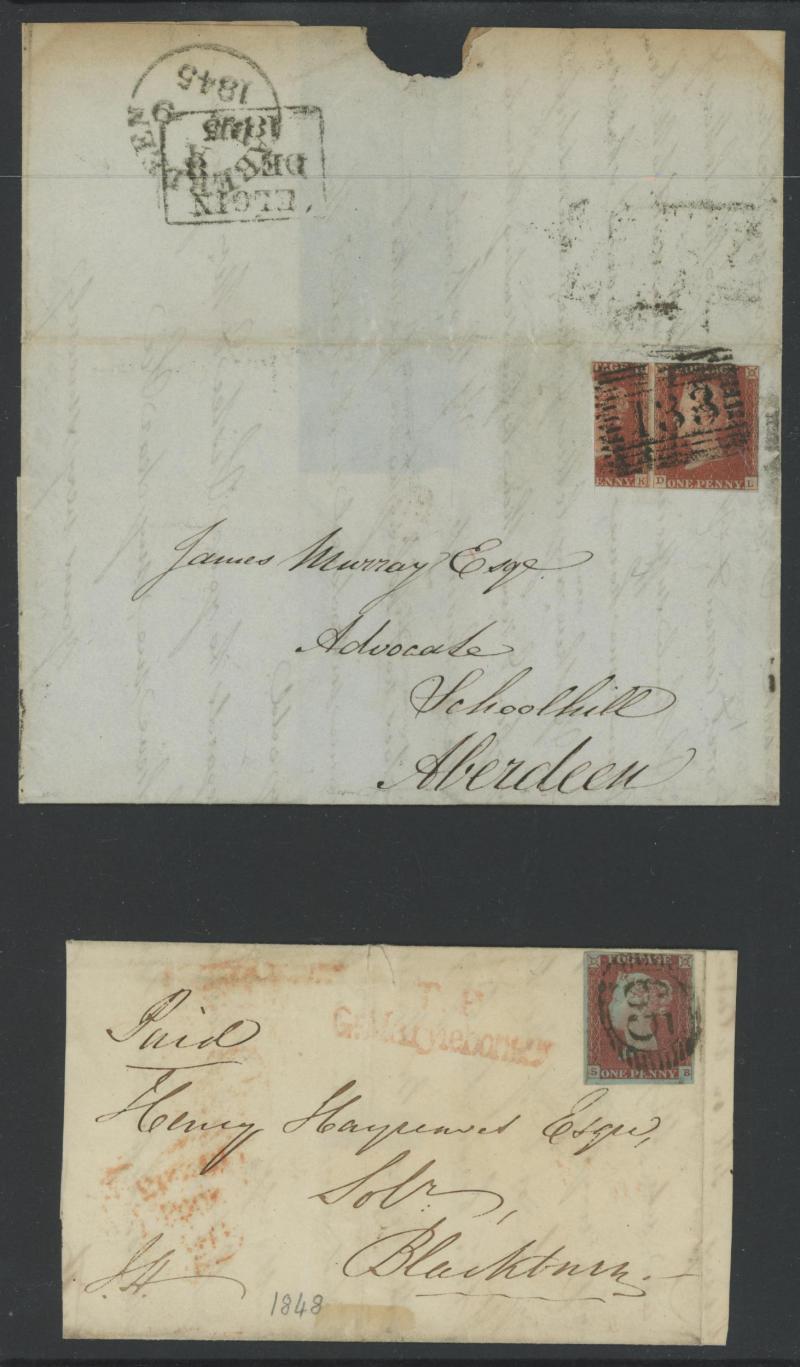 ABERDEEN
9
1845
ELGIN
DE 8
1845
133
TAGE
POSTAGE
ENNY K
D ONE PENNY L
James Murray Esqr.
Advocate
Schoolhill
Aberdeen
T. P
Gt Marylebone St
POSTAGE
S ONE PENNY B
Paid
Henry Hargreaves Esqre,
Solr,
Blackburn
J.H.
1848